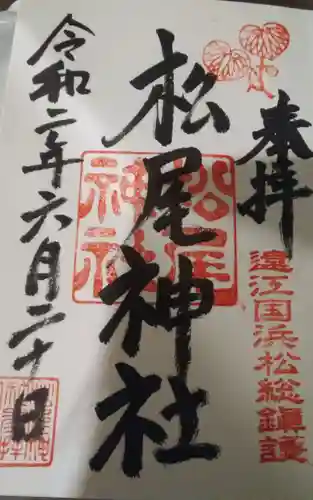 奉拝
遠江国浜松総鎮護
松尾神社
松尾
神社
令和二年六月二十日